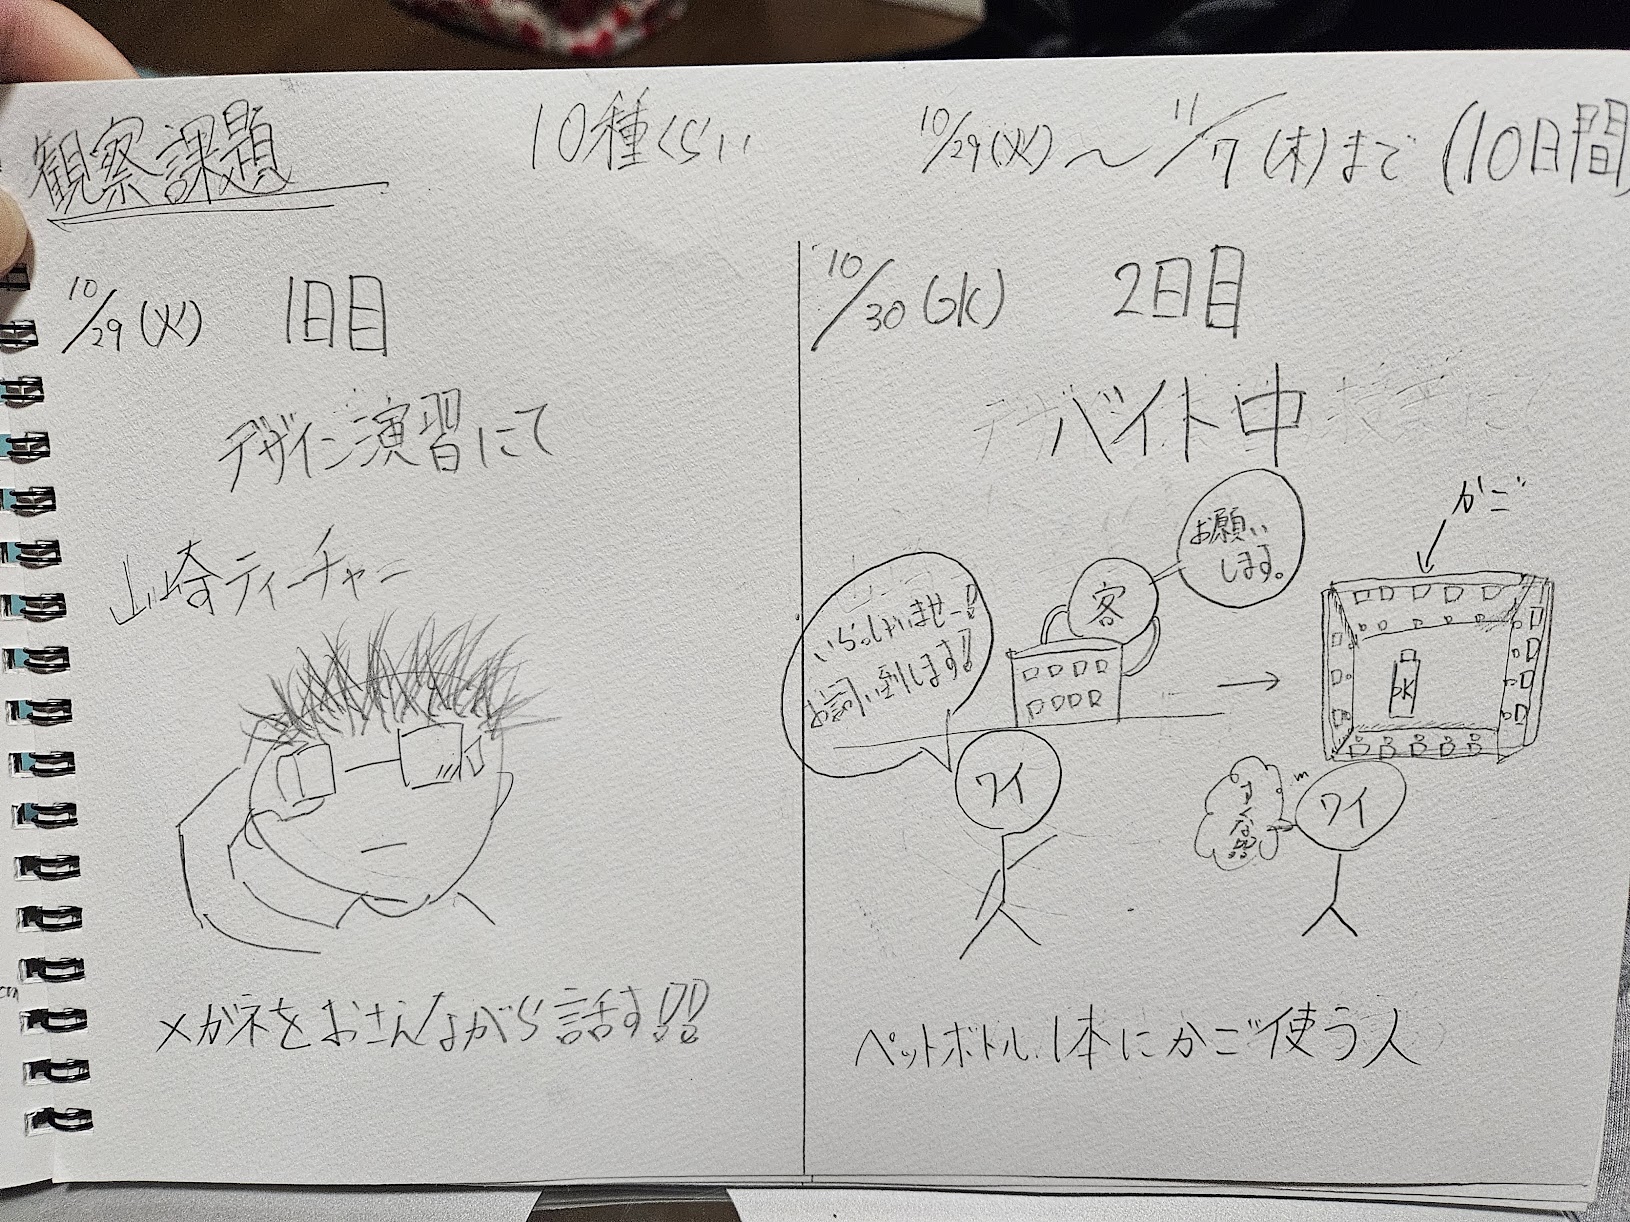 観察課題
10種くらい
10/29(火)〜11/7(木)まで(10日間
10/29(火) 1日目
デザイン演習にて
山崎ティーチャー
メガネをおさえながら話す!!
10/30(水) 2日目
バイト中
かご
お願い
します。
客
いらっしゃいませー!
お伺い致します!
ワイ
水
ワイ
ペットボトル1本にかご使う人